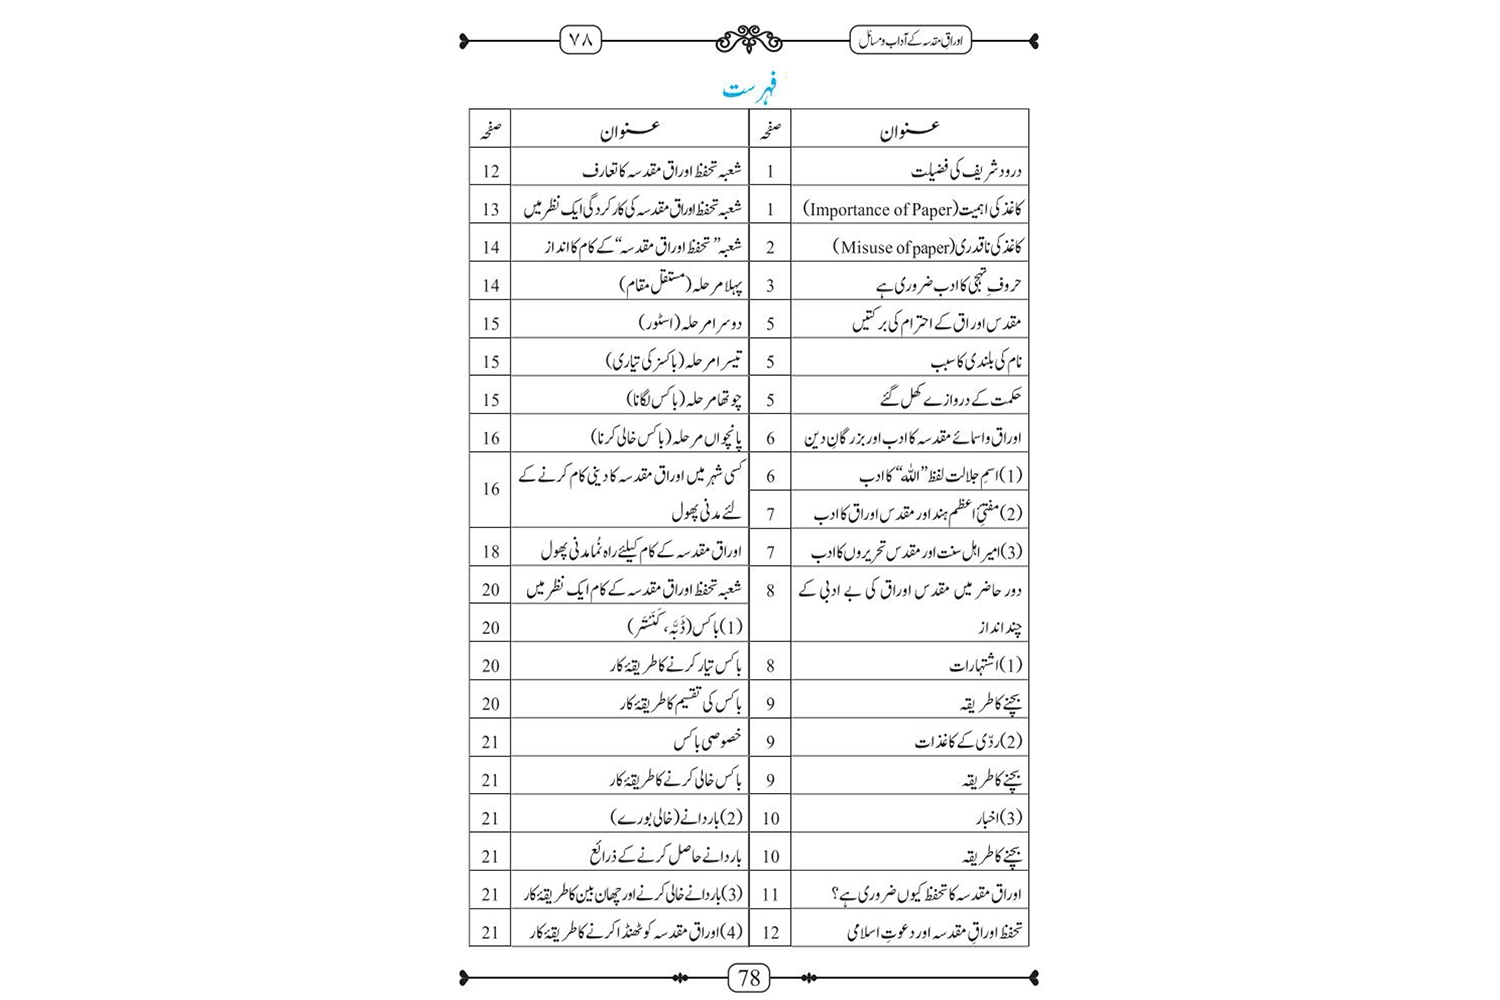 اوراقِ مقدسہ کے آداب و مسائل
۷۸
فہرست
عنوان صفحہ عنوان صفحہ
درود شریف کی فضیلت 1 شعبہ تحفظ اوراق مقدسہ کا تعارف 12
کاغذ کی اہمیت (Importance of Paper) 1 شعبہ تحفظ اوراق مقدسہ کی کارکردگی ایک نظر میں 13
کاغذ کی ناقدری (Misuse of paper) 2 شعبہ ”تحفظ اوراق مقدسہ“ کے کام کا انداز 14
حروفِ تہجی کا ادب ضروری ہے 3 پہلا مرحلہ (مستقل مقام) 14
مقدس اوراق کے احترام کی برکتیں 5 دوسرا مرحلہ (اسٹور) 15
نام کی بلندی کا سبب 5 تیسرا مرحلہ (باکسز کی تیاری) 15
حکمت کے دروازے کھل گئے 5 چوتھا مرحلہ (باکس لگانا) 15
اوراق و اسمائے مقدسہ کا ادب اور بزرگانِ دین 6 پانچواں مرحلہ (باکس خالی کرنا) 16
(1) اسمِ جلالت لفظ ”اللہ“ کا ادب 6 کسی شہر میں اوراق مقدسہ کا دینی کام کرنے کے 16
(2) مفتیِٔ اعظم ہند اور مقدس اوراق کا ادب 7 لئے مدنی پھول
(3) امیر اہل سنت اور مقدس تحریروں کا ادب 7 اوراق مقدسہ کے کام کیلئے راہ نُما مدنی پھول 18
دور حاضر میں مقدس اوراق کی بے ادبی کے 8 شعبہ تحفظ اوراق مقدسہ کے کام ایک نظر میں 20
چند انداز (1) باکس (ڈَبَّہ، کَنَسْتَر) 20
(1) اشتہارات 8 باکس تیار کرنے کا طریقۂ کار 20
بچنے کا طریقہ 9 باکس کی تقسیم کا طریقۂ کار 20
(2) ردّی کے کاغذات 9 خصوصی باکس 21
بچنے کا طریقہ 9 باکس خالی کرنے کا طریقۂ کار 21
(3) اخبار 10 (2) باردانے (خالی بورے) 21
بچنے کا طریقہ 10 باردانے حاصل کرنے کے ذرائع 21
اوراق مقدسہ کا تحفظ کیوں ضروری ہے؟ 11 (3) باردانے خالی کرنے اور چھان بین کا طریقۂ کار 21
تحفظ اوراقِ مقدسہ اور دعوتِ اسلامی 12 (4) اوراق مقدسہ کو ٹھنڈا کرنے کا طریقۂ کار 21
78